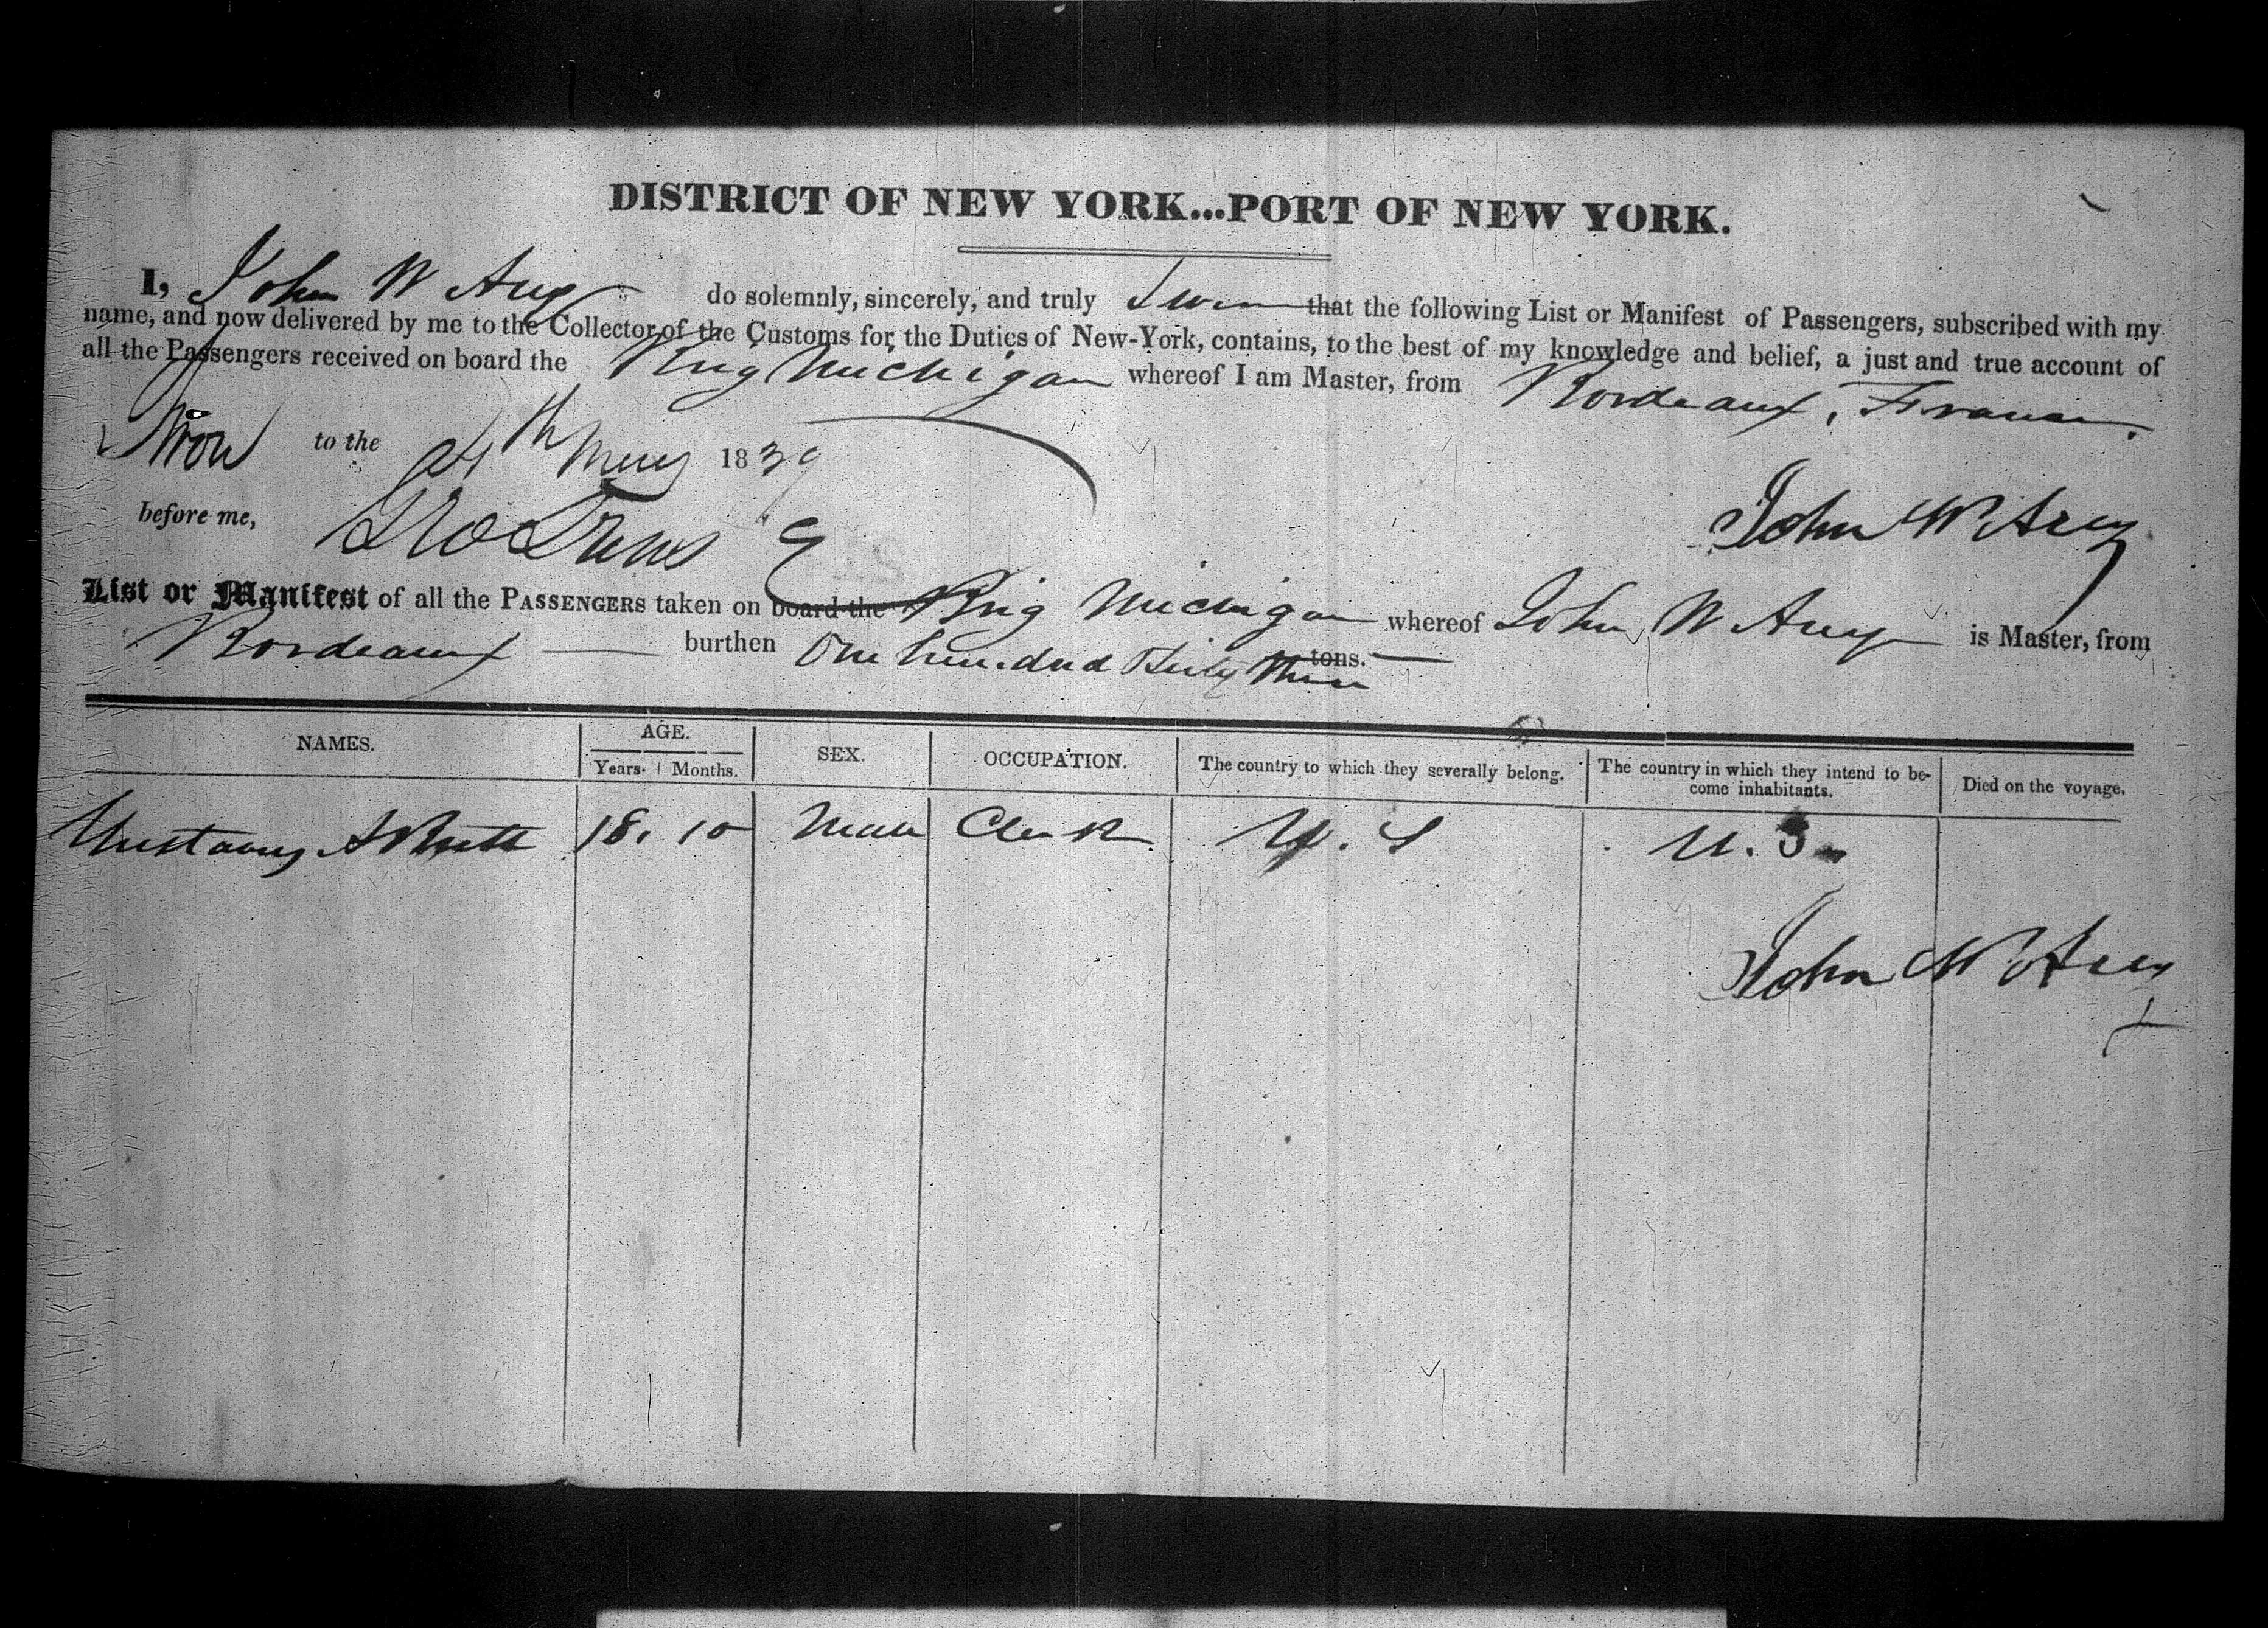 DISTRICT OF NEW YORK...PORT OF NEW YORK.
I, John W Arey do solemnly, sincerely, and truly Swear that the following List or Manifest of Passengers, subscribed with my
name, and now delivered by me to the Collector of the Customs for the Duties of New-York, contains, to the best of my knowledge and belief, a just and true account of
all the Passengers received on board the Brig Michigan whereof I am Master, from Bordeaux, France.
Sworn to the 24th May 1839
before me, John W Arey
List or Manifest of all the PASSENGERS taken on board the Brig Michigan whereof John W Arey is Master, from
Bordeaux burthen One hundred Three tons.
NAMES. AGE. SEX. OCCUPATION. The country to which they severally belong. The country in which they intend to be-
Years. Months. come inhabitants. Died on the voyage.
18. 10 Male Clerk U. S U. S.
John W Arey